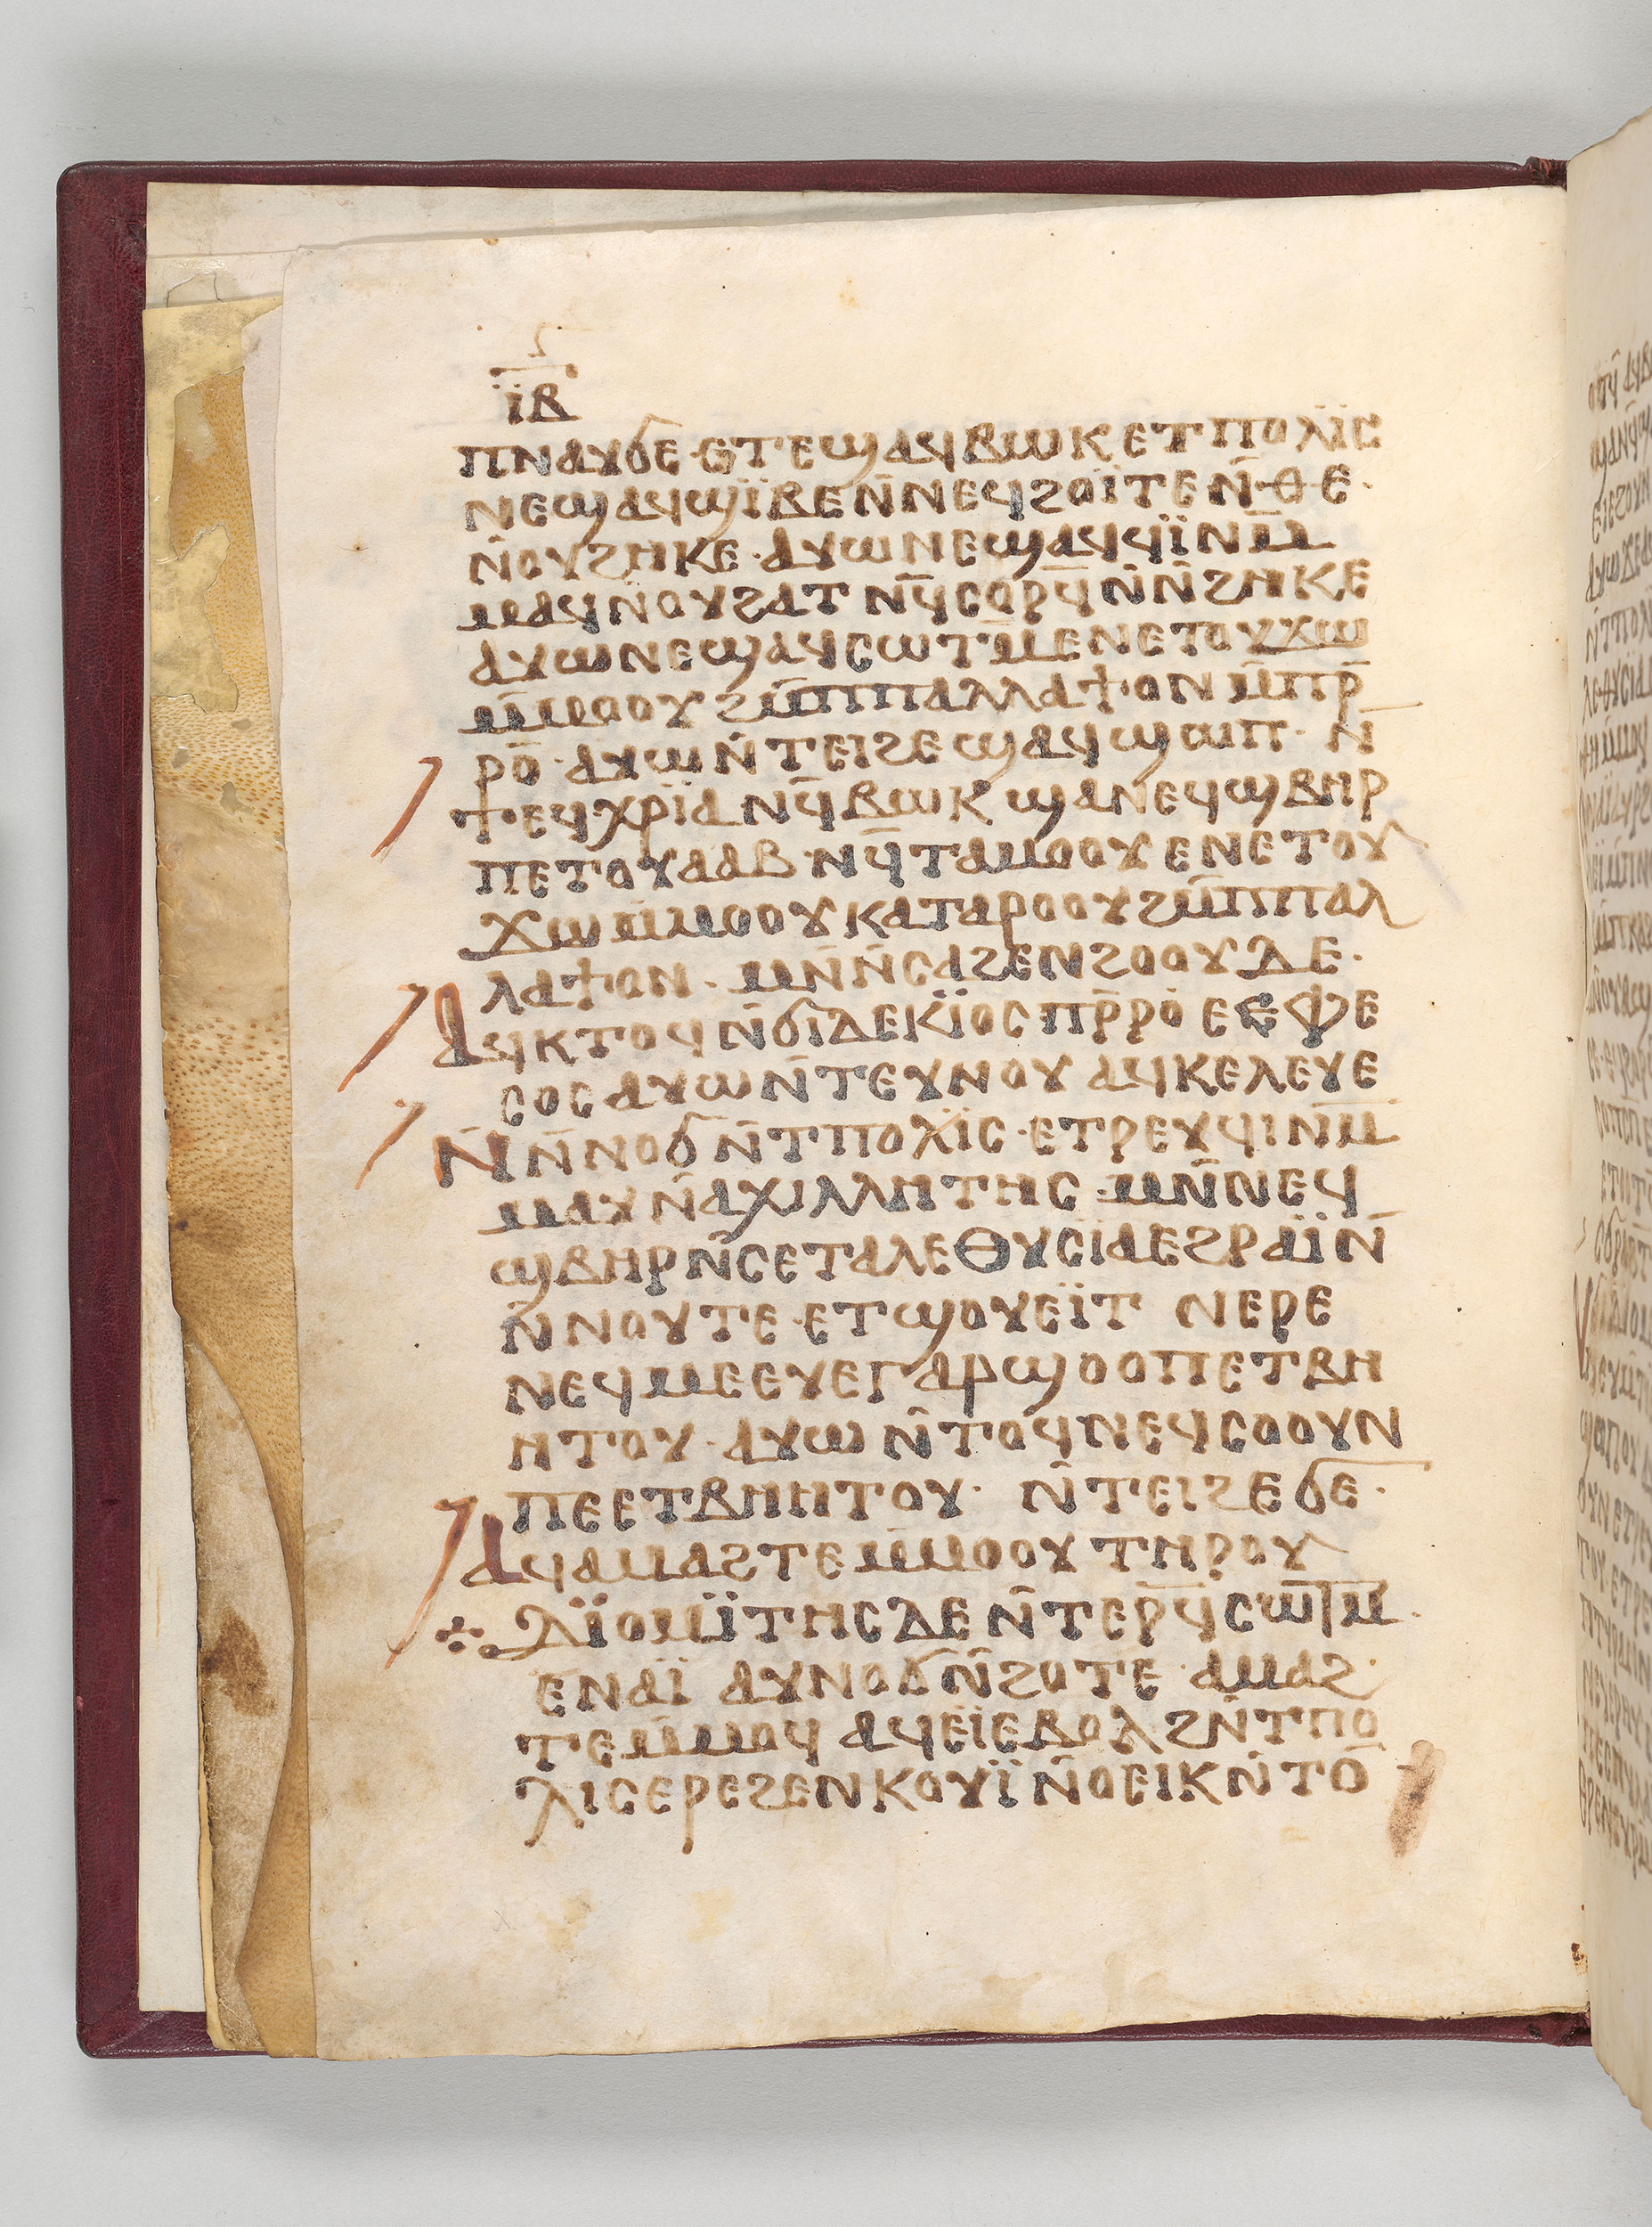 ⲓ̈ⲃ
ⲡⲛⲁⲩϭⲉ ⲉⲧⲉϣⲁϥⲃⲱⲕ ⲉⲧⲡⲟⲗⲓ̈ⲥ
ⲛⲉϣⲁϥϣⲓ̈ⲃⲉⲛ̄ⲛⲉϥϩⲟⲓ̈ⲧⲉⲛ̄ⲑⲉ·
ⲛ̄ⲟⲩϩⲏⲕⲉ· ⲁⲩⲱⲛⲉϣⲁϥϥⲓ̈ⲛⲙ̄
ⲙⲁϥⲛⲟⲩϩⲁⲧ ⲛϥ̄ⲥⲟⲣϥ̄ ⲛ̄ⲛ̄ϩⲏⲕⲉ
ⲁⲩⲱⲛⲉϣⲁϥⲥⲱⲧⲙ̄ⲉⲛⲉⲧⲟⲩϫⲱ
ⲙ̄ⲙⲟⲟⲩ ϩⲙ̄ⲡⲡⲁⲗⲗⲁϯⲟⲛ ⲙ̄ⲡⲣ̄
ⲣⲟ̄· ⲁⲩⲱⲛ̄ⲧⲉⲓϩⲉϣⲁϥϣⲱⲡ· ⲛ̄
ⲧⲉϥⲭⲣⲓ̈ⲁ ⲛϥ̄ⲃⲱⲕ ϣⲁⲛⲉϥϣⲃⲏⲣ
ⲡⲉⲧⲟⲩⲁⲁⲃ·ⲛϥ̄ⲧⲁⲙⲟⲟⲩ ⲉⲛⲉⲧⲟⲩ
ϫⲱ ⲙ̄ⲙⲟⲟⲩ ⲕⲁⲧⲁⲣⲟⲟⲩ ϩⲙ̄ⲡⲡⲁⲗ
ⲗⲁϯⲟⲛ· ⲙⲛ̄ⲛ̄ⲥⲁϩⲉⲛϩⲟⲟⲩ ⲇⲉ·
ⲁϥⲕⲧⲟϥ ⲛ̄ϭⲓⲇⲉⲕⲓ̈ⲟⲥ ⲡⲣ̄ⲣⲟ ⲉⲉⲫⲉ
ⲥⲟⲥ ⲁⲩⲱⲛ̄ⲧⲉⲩⲛⲟⲩ ⲁϥⲕⲉⲗⲉⲩⲉ
ⲛ̄ⲛ̄ⲛⲟϭ ⲛ̄ⲧⲡⲟⲗⲓ̈ⲥ·ⲉⲧⲣⲉⲩϥⲓⲛⲙ̄
ⲙⲁⲩ ⲛ̄ⲁⲭⲓⲗⲗⲏⲧⲏⲥ ·ⲙⲛ̄ⲛⲉϥ
ϣⲃⲏⲣ ⲛ̄ⲥⲉⲧⲁⲗⲉⲑⲩⲥⲓ̈ⲁ ⲉϩⲣⲁⲓ̈ⲛ̄
ⲛ̄ⲛⲟⲩⲧⲉ·ⲉⲧϣⲟⲩⲉⲓ̈ⲧ ⲛⲉⲣⲉ
ⲛⲉϥⲙⲉⲉⲩⲉⲅⲁⲣϣⲟⲟⲡⲉⲧⲃⲏ
ⲏⲧⲟⲩ· ⲁⲩⲱ ⲛ̄ⲧⲟϥⲛⲉϥⲥⲟⲟⲩⲛ
ⲡⲉⲉⲧⲃⲏⲏⲧⲟⲩ· ⲛ̄ⲧⲉⲓϩⲉϭⲉ·
ⲁϥⲁⲙⲁϩⲧⲉ ⲙ̄ⲙⲟⲟⲩ ⲧⲏⲣⲟⲩ
ⲇⲓ̈ⲟⲙⲓ̈ⲧⲏⲥ ⲇⲉ ⲛ̄ⲧⲉⲣϥ̄ⲥⲱⲧⲙ̄·
ⲉⲛⲁⲓ̈ ⲁⲩⲛⲟϭⲛ̄ϩⲟⲧⲉ ⲁⲙⲁϩ·
ⲧⲉⲙ̄ⲙⲟϥ ⲁϥⲉⲓ̈ⲉⲃⲟⲗ ϩⲛ̄ⲧⲡⲟ
ⲗⲓⲥ ⲉⲣⲉϩⲉⲛⲕⲟⲩⲓ̈ ⲛ̄ⲟⲉⲓⲕ ⲛ̄ⲧⲟ̄